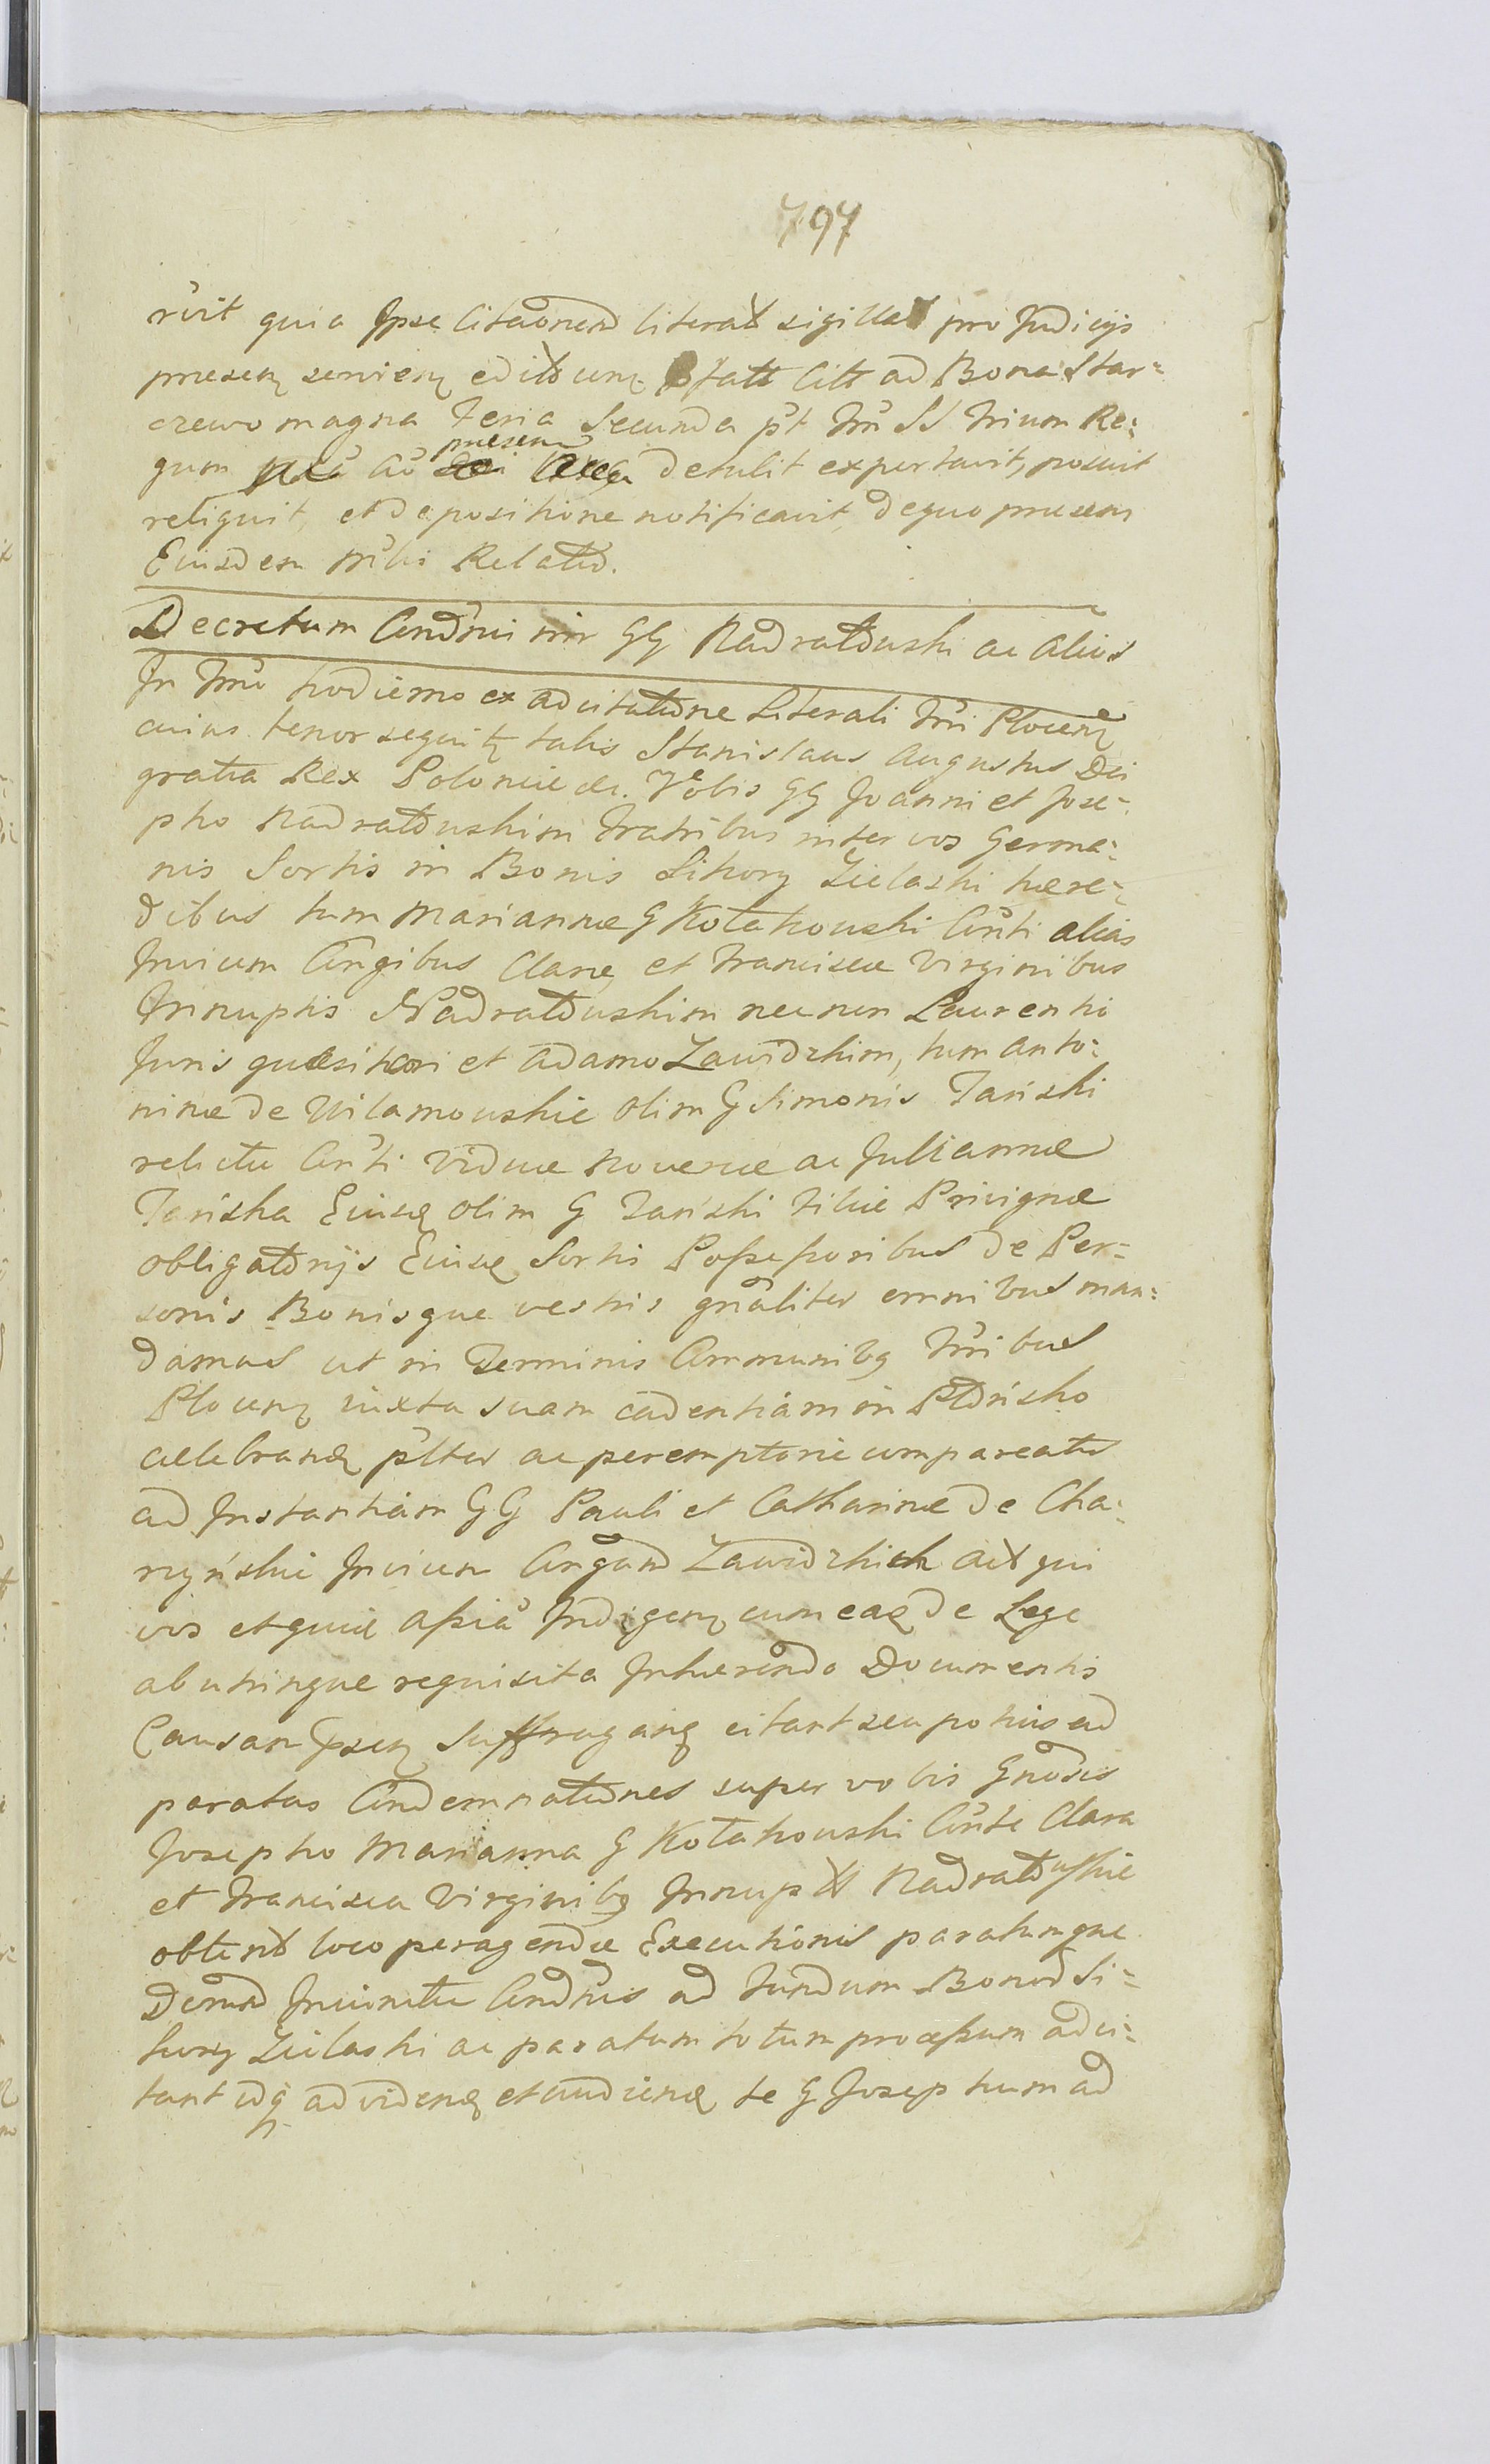 797
ruit quia Ipse Citaonem literat sigillat pro Judicijs
praesen servien edit cum statt Citt ad Bona Star=
czewo magna Feria Secunda pt Frm SS Trium Re=
gum Ao praesenti detulit exportavit, posuit
reliquit, et de positione notificavit, de quo praesens
Eiusdem Mlis Relatio.
Decretum Condnni inr GG Nadratowski ac alios
In Trno hodierno ex adcitatione Literali Trri Plocen
cuius tenor sequit talis Stanislaus Augustus Dei
gratia Rex Poloniae &c. Vobis GG Joanni et Jose=
pho Nadratowskim Fratribus inter vos Germa=
nis Sortis in Bonis Sikory Zielaski haere=
dibus tum Mariannae G Kołakowski Conti alias
Invicem Congibus Clarae et Franciscae Virginibus
Innuptis Nadratowskim nec non Laurentio
Juris quaesitori et Adamo Zawidzkim, tum Anto=
ninae de Wilamowskie olim G Simonis Tański
relictae Conti Viduae Novercae ac Juliannae
Tańska Eiusd olim G Tański Filiae Privignae
obligatorijs Eiusd Sortis Possessoribus de Per=
sonis Bonisque vestris gnaliter omnibus man=
damus ut in Terminis Communibq Trribus
Plocen iuxta suam cadentiam in Płońsko
celebrand pltr ac peremptorie compareatis
ad Instantiam GG Pauli et Catharinae de Cha=
rzyńskie Invicem Congum Zawidzkich act qui
vos et quia cum ead de Lege
ab utrinque requisita Inhaerendo Documentis
Causam Ipsen Suffragan citant seu potius ad
paratas Condemnationes super vobis Gnosis
Josepho Marianna G Kołakowski Conte Clara
et Francisca Virginibq Innuptt Nadratowskie
obtent loco peragendae Executionis paratumque
ad Fundum Bonor Si=
kory Zielaski ac paratum totum processum adci=
tant idq ad vidend et audiend te G Josephum ad